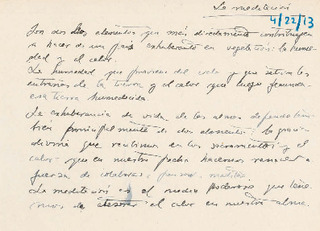 La meditación
4/22/13
Son dos los elementos que más directamente contribuyen
a hacer de un país exhuberante en vegetación: la hume-
dad y el calor.
La humedad que proviene del cielo y que activa las
entrañas de la tierra, y el calor que luego fecunda
esa tierra humedecida.
La exhuberancia de vida de las almas depende tam-
bién principalmente de dos elementos: la gracia
divina que recibimos en los sacramentos y el
calor que en nuestro pecho hacemos nosotros a
fuerza de
La meditación es el medio poderoso que tene-
mos de atesorar el calor en nuestra alma.